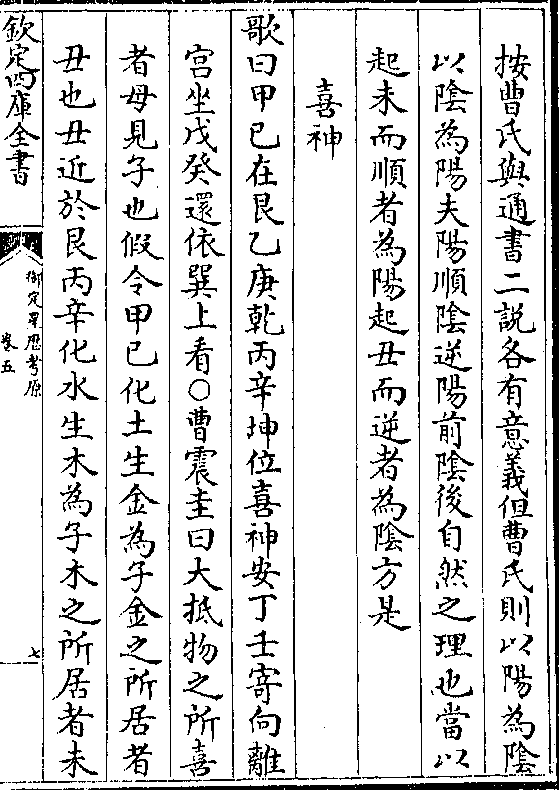 按曹氏與通書二説各有意義但曹氏則以陽為陰
以陰為陽夫陽順陰逆陽前陰後自然之理也當以
起未而順者為陽起丑而逆者為陰方是
喜神
歌曰甲巳在艮乙庚乾丙辛坤位喜神安丁壬寄向離
宫坐戊癸還依巽上看○曹震圭曰大抵物之所喜
者母見子也假令甲巳化土生金為子金之所居者
丑也丑近於艮丙辛化水生木為子木之所居者未
欽定四庫全書
御定星厯考原
卷五
七